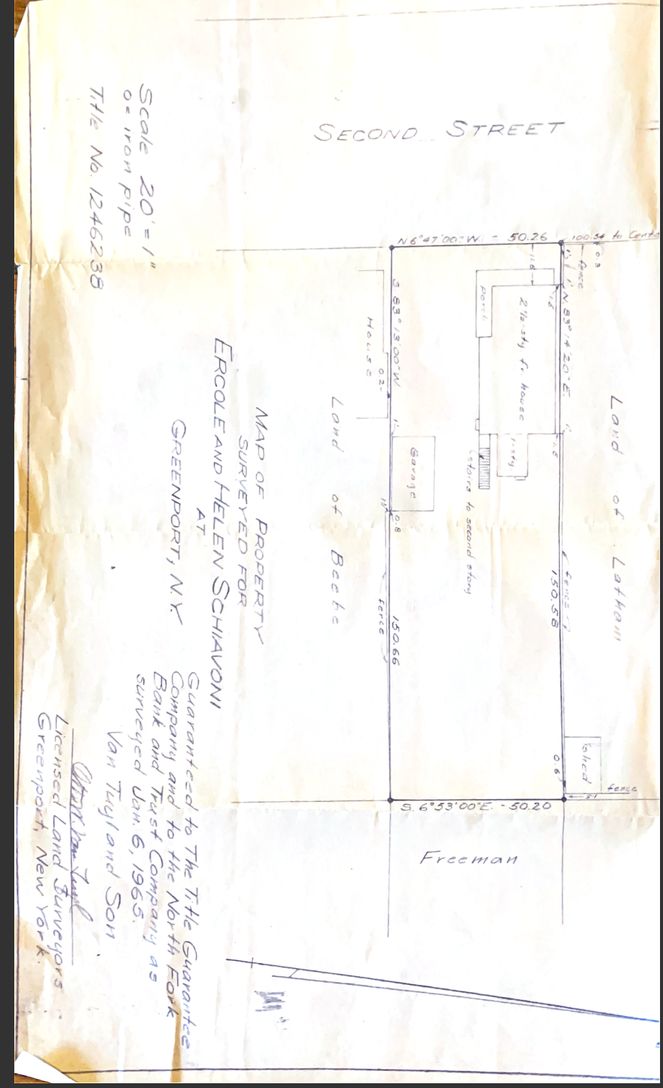 SECOND STREET
N 6°47'00"W. - 50.26
100.54 to
fence
0.3
N. 83°14'20"E.
S 83°13'00"W
House
0.2
porch
2½ sty fr. house
1 sty
Garage
stairs to second story
0.8
fence
150.66
fence
150.58
shed
0.6
fence
S. 6°53'00"E. - 50.20
Land of Latham
Land of Beebe
Freeman
MAP OF PROPERTY
SURVEYED FOR
ERCOLE AND HELEN SCHIAVONI
AT
GREENPORT, N.Y.
Scale 20' = 1"
o = iron pipe
Title No. 1246238
Guaranteed to The Title Guarantee
Company and to the North Fork
Bank and Trust Company as
surveyed Jan. 6, 1965.
Van Tuyl and Son
Licensed Land Surveyors
Greenport, New York.